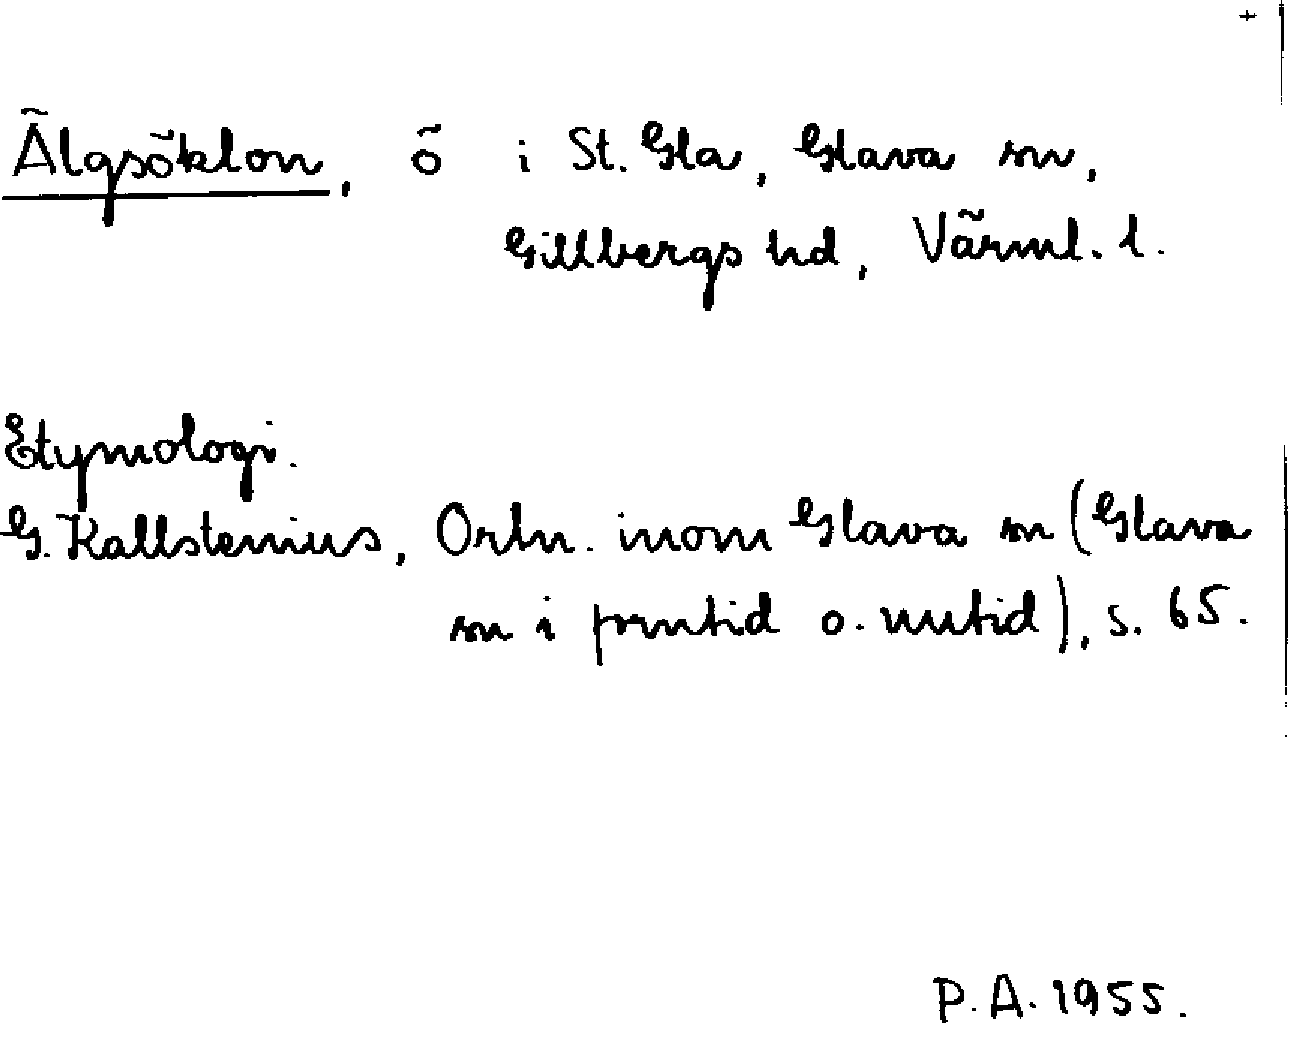 +
Älgsöklon, ö i St. Gla, Glava sn,
Gillbergs hd, Värml. l.
Etymologi.
G. Kallstenius, Ortn. inom Glava sn (Glava
sn i forntid o. nutid), s. 65.
P. A. 1955.